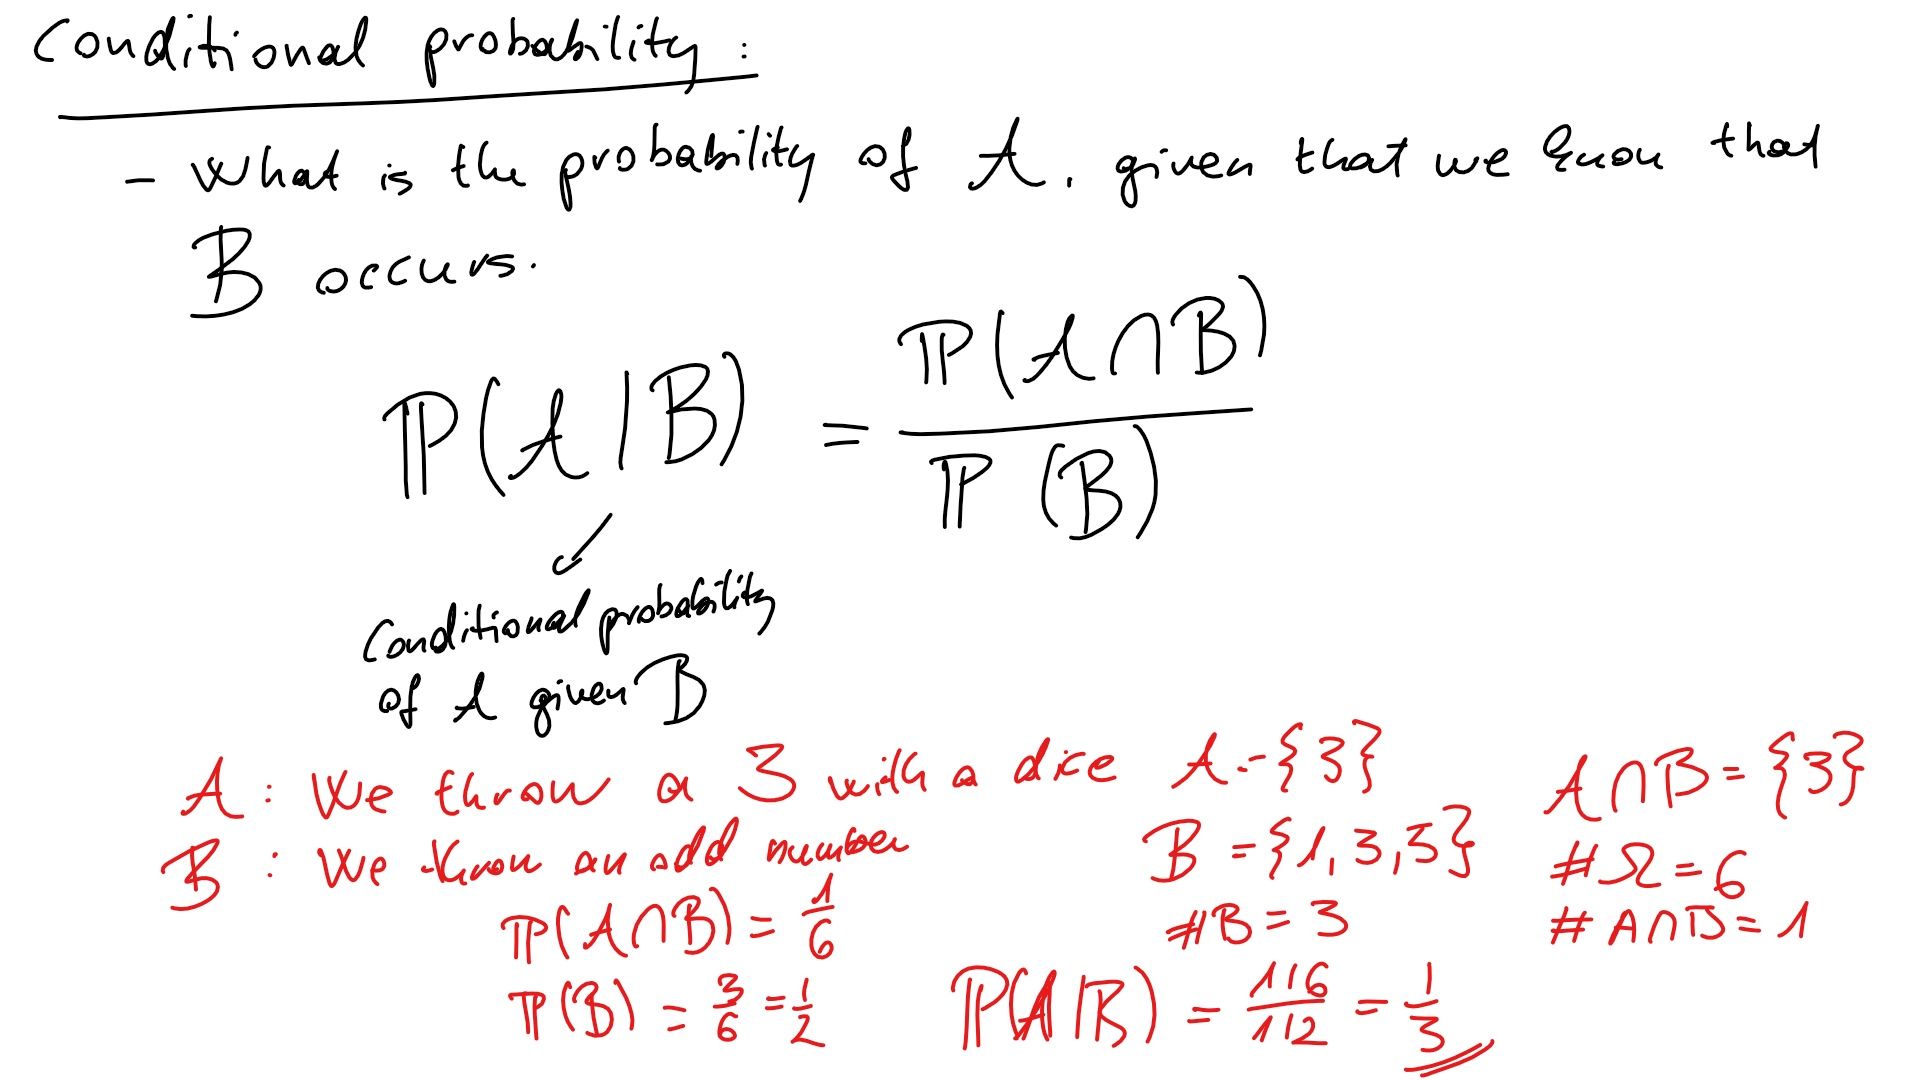 Conditional probability :
- What is the probability of A, given that we know that
B occurs.
P(A | B) = P(A ∩ B) / P(B)
Conditional probability
of A given B
A : We throw a 3 with a dice A = {3} A ∩ B = {3}
B : We throw an odd number B = {1, 3, 5} #Ω = 6
P(A ∩ B) = 1/6 #B = 3 # A ∩ B = 1
P(B) = 3/6 = 1/2 P(A | B) = 1/6 / 1/2 = 1/3